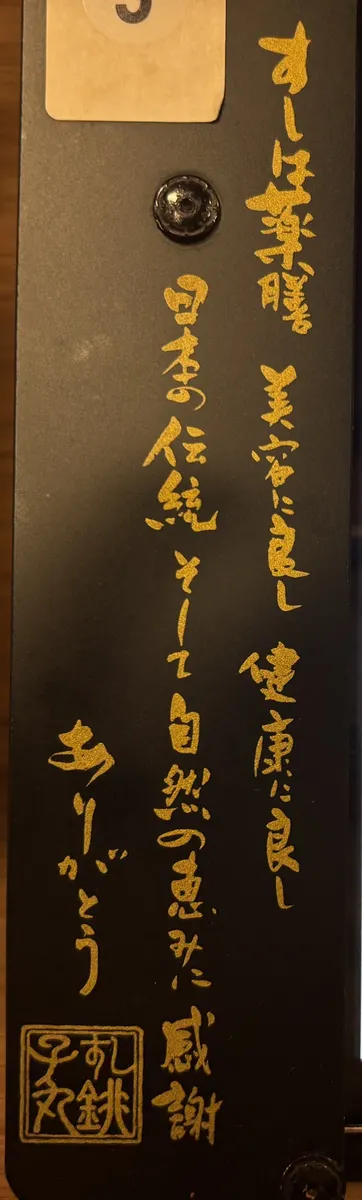 すしは薬膳 美容に良し 健康に良し
日本の伝統 そして自然の恵みに 感謝
ありがとう
すし銚子丸